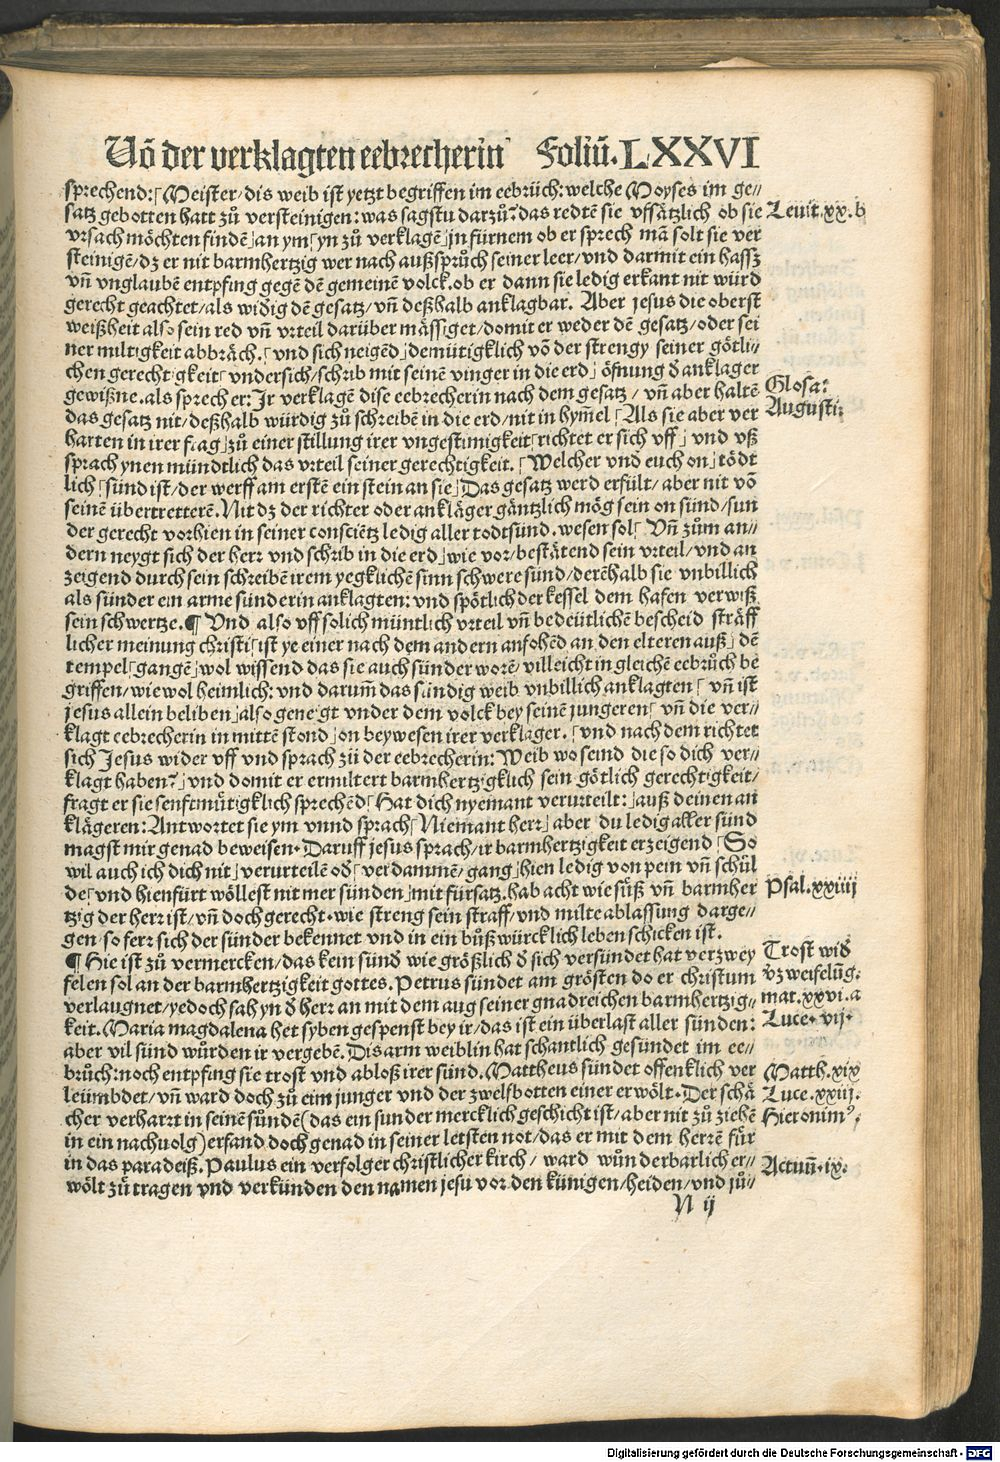 Uõ der verklagten eebrecherin Foliū. LXXVI
sprechend:⌈Meister/dis weib ist yetzt begriffen im eebrüch: welche Moyses im ge⸗
satz gebotten hatt zů versteinigen: was sagstu darzů?⌋das redtē sie vffsätzlich ob sie
Leuit.xx.b
vrsach möchten findē⌋an ym⌈yn zů verklagē⌋jn fürnem ob er sprech mā solt sie ver
steinigē/dz er nit barmhertzig wer nach außsprůch seiner leer/vnd darmit ein hassz
vñ vnglaubē entpfing gegē dē gemeinē volck. ob er dann sie ledig erkant nit würd
gerecht geachtet/als widig dē gesatz/vñ deßhalb anklagbar. Aber jesus die oberst
weißheit also sein red vñ vrteil darüber mässiget/domit er weder dē gesatz/oder sei
ner miltigkeit abbräch.⌈vnd sich neigēd⌋demütigklich võ der strengy seiner götli⸗
chen gerechtigkeit⌈vndersich/schrib mit seinē vinger in die erd⌋öfnung ð anklager
gewißne. als sprech er: Ir verklagē dise eebrecherin nach dem gesatz/vñ aber haltē
Glosa:
das gesatz nit/deßhalb würdig zů schreibē in die erd/nit in hym̄el⌈Als sie aber ver
Augusti;
harten in irer frag⌋zů einer stillung irer vngestimigkeit⌈richtet er sich vff⌋vnd vß
sprach ynen mündtlich das vrteil seiner gerechtigkeit.⌈Welcher vnð euch on⌋tödt
lich⌈sünd ist/der werff am erstē ein stein an sie⌋Das gesatz werd erfült/aber nit võ
seinē übertretterē. Nit dz der richter oder ankläger gäntzlich mög sein on sünd/sun
der gerecht vorhien in seiner consciētz ledig aller todtsünd. wesen sol⌈Vñ zům an⸗
dern neygt sich der herr vnd schrib in die erd⌋wie vor/bestätend sein vrteil/vnd an
zeigend durch sein schreibē irem yegklichē sinn schwere sünd/derēhalb sie vnbillich
als sünder ein arme sünderin anklagten: vnd spötlich der kessel dem hafen verwiß
sein schwertze.¶ Vnd also vff solich müntlich vrteil vñ bedeütlichē bescheid sträff
licher meinung christi⌈ist ye einer nach dem andern anfohēd an den elteren auß⌋dē
tempel⌈gangē⌋wol wissend das sie auch sünder worē villeicht in gleichē eebrůch be
griffen/wiewol heimlich: vnd darum̄ das sündig weib vnbillich anklagten⌈vñ ist
jesus allein beliben⌋also geneigt vnder dem volck bey seinē jungeren⌈vñ die ver⸗
klagt eebrecherin in mittē stond⌋on beywesen irer verklager.⌈vnd nach dem richtet
sich Jesus wider vff vnd sprach zů der eebrecherin: Weib wo seind die so dich ver⸗
klagt haben?⌋vnd domit er ermiltert barmhertzigklich sein götlich gerechtigkeit/
fragt er sie senftmütigklich sprechēd⌈Hat dich nyemant verurteilt:⌋auß deinen an
klägeren: Antwortet sie ym vnnd sprach⌈Niemant herr⌋aber du ledig aller sünd
magst mir genad beweisen. Daruff jesus sprach/ir barmhertzigkeit erzeigend⌈So
wil auch ich dich nit⌋verurteilē oð⌈verdammē/gang⌋hien ledig von pein vñ schül
de⌈vnd hienfürt wöllest nit mer sünden⌋mit fürsatz. hab acht wie süß vñ barmher
Psal.xxiiij
tzig der herr ist/vñ doch gerecht. wie streng sein straff/vnd milte ablassung darge⸗
gen/so ferr sich der sünder bekennet vnd in ein bůßwürcklich leben schicken ist.
¶ Hie ist zů vermercken/das kein sünð wie größlich ð sich versündet hat verzwey
Trost wið
felen sol an der barmhertzigkeit gottes. Petrus sündet am grösten do er christum
v̈zweifelūg.
verlaugnet/yedoch sah yn ð herr an mit dem aug seiner gnadreichen barmhertzig⸗
mat.xxvi.a
keit. Maria magdalena het syben gespenst bey ir/das ist ein überlast aller sünden:
Luce. vij.
aber vil sünd würden ir vergebē. Dis arm weiblin hat schantlich gesündet im ee⸗
brůch: noch entpfing sie trost vnd abloß irer sünd. Mattheus sündet offenklich ver
Matth.xix
leümbdet/vñ ward doch zů eim junger vnd der zwelfbotten einer erwölt. Der schä
Luce.xxiij.
cher verharrt in seinē sündē (das ein sunder mercklich geschicht ist/aber nit zů ziehē
Hieronimꝰ;
in ein nachuolg) erfand doch genad in seiner letsten not/das er mit dem herrē für
in das paradeiß. Paulus ein verfolger christlicher kirch/ward wůnderbarlich er⸗
Actuū.ix.
wölt zů tragen vnd verkünden den namen jesu vor den künigen/heiden/vnd jü⸗
N ij
Digitalisierung gefördert durch die Deutsche Forschungsgemeinschaft - DFG